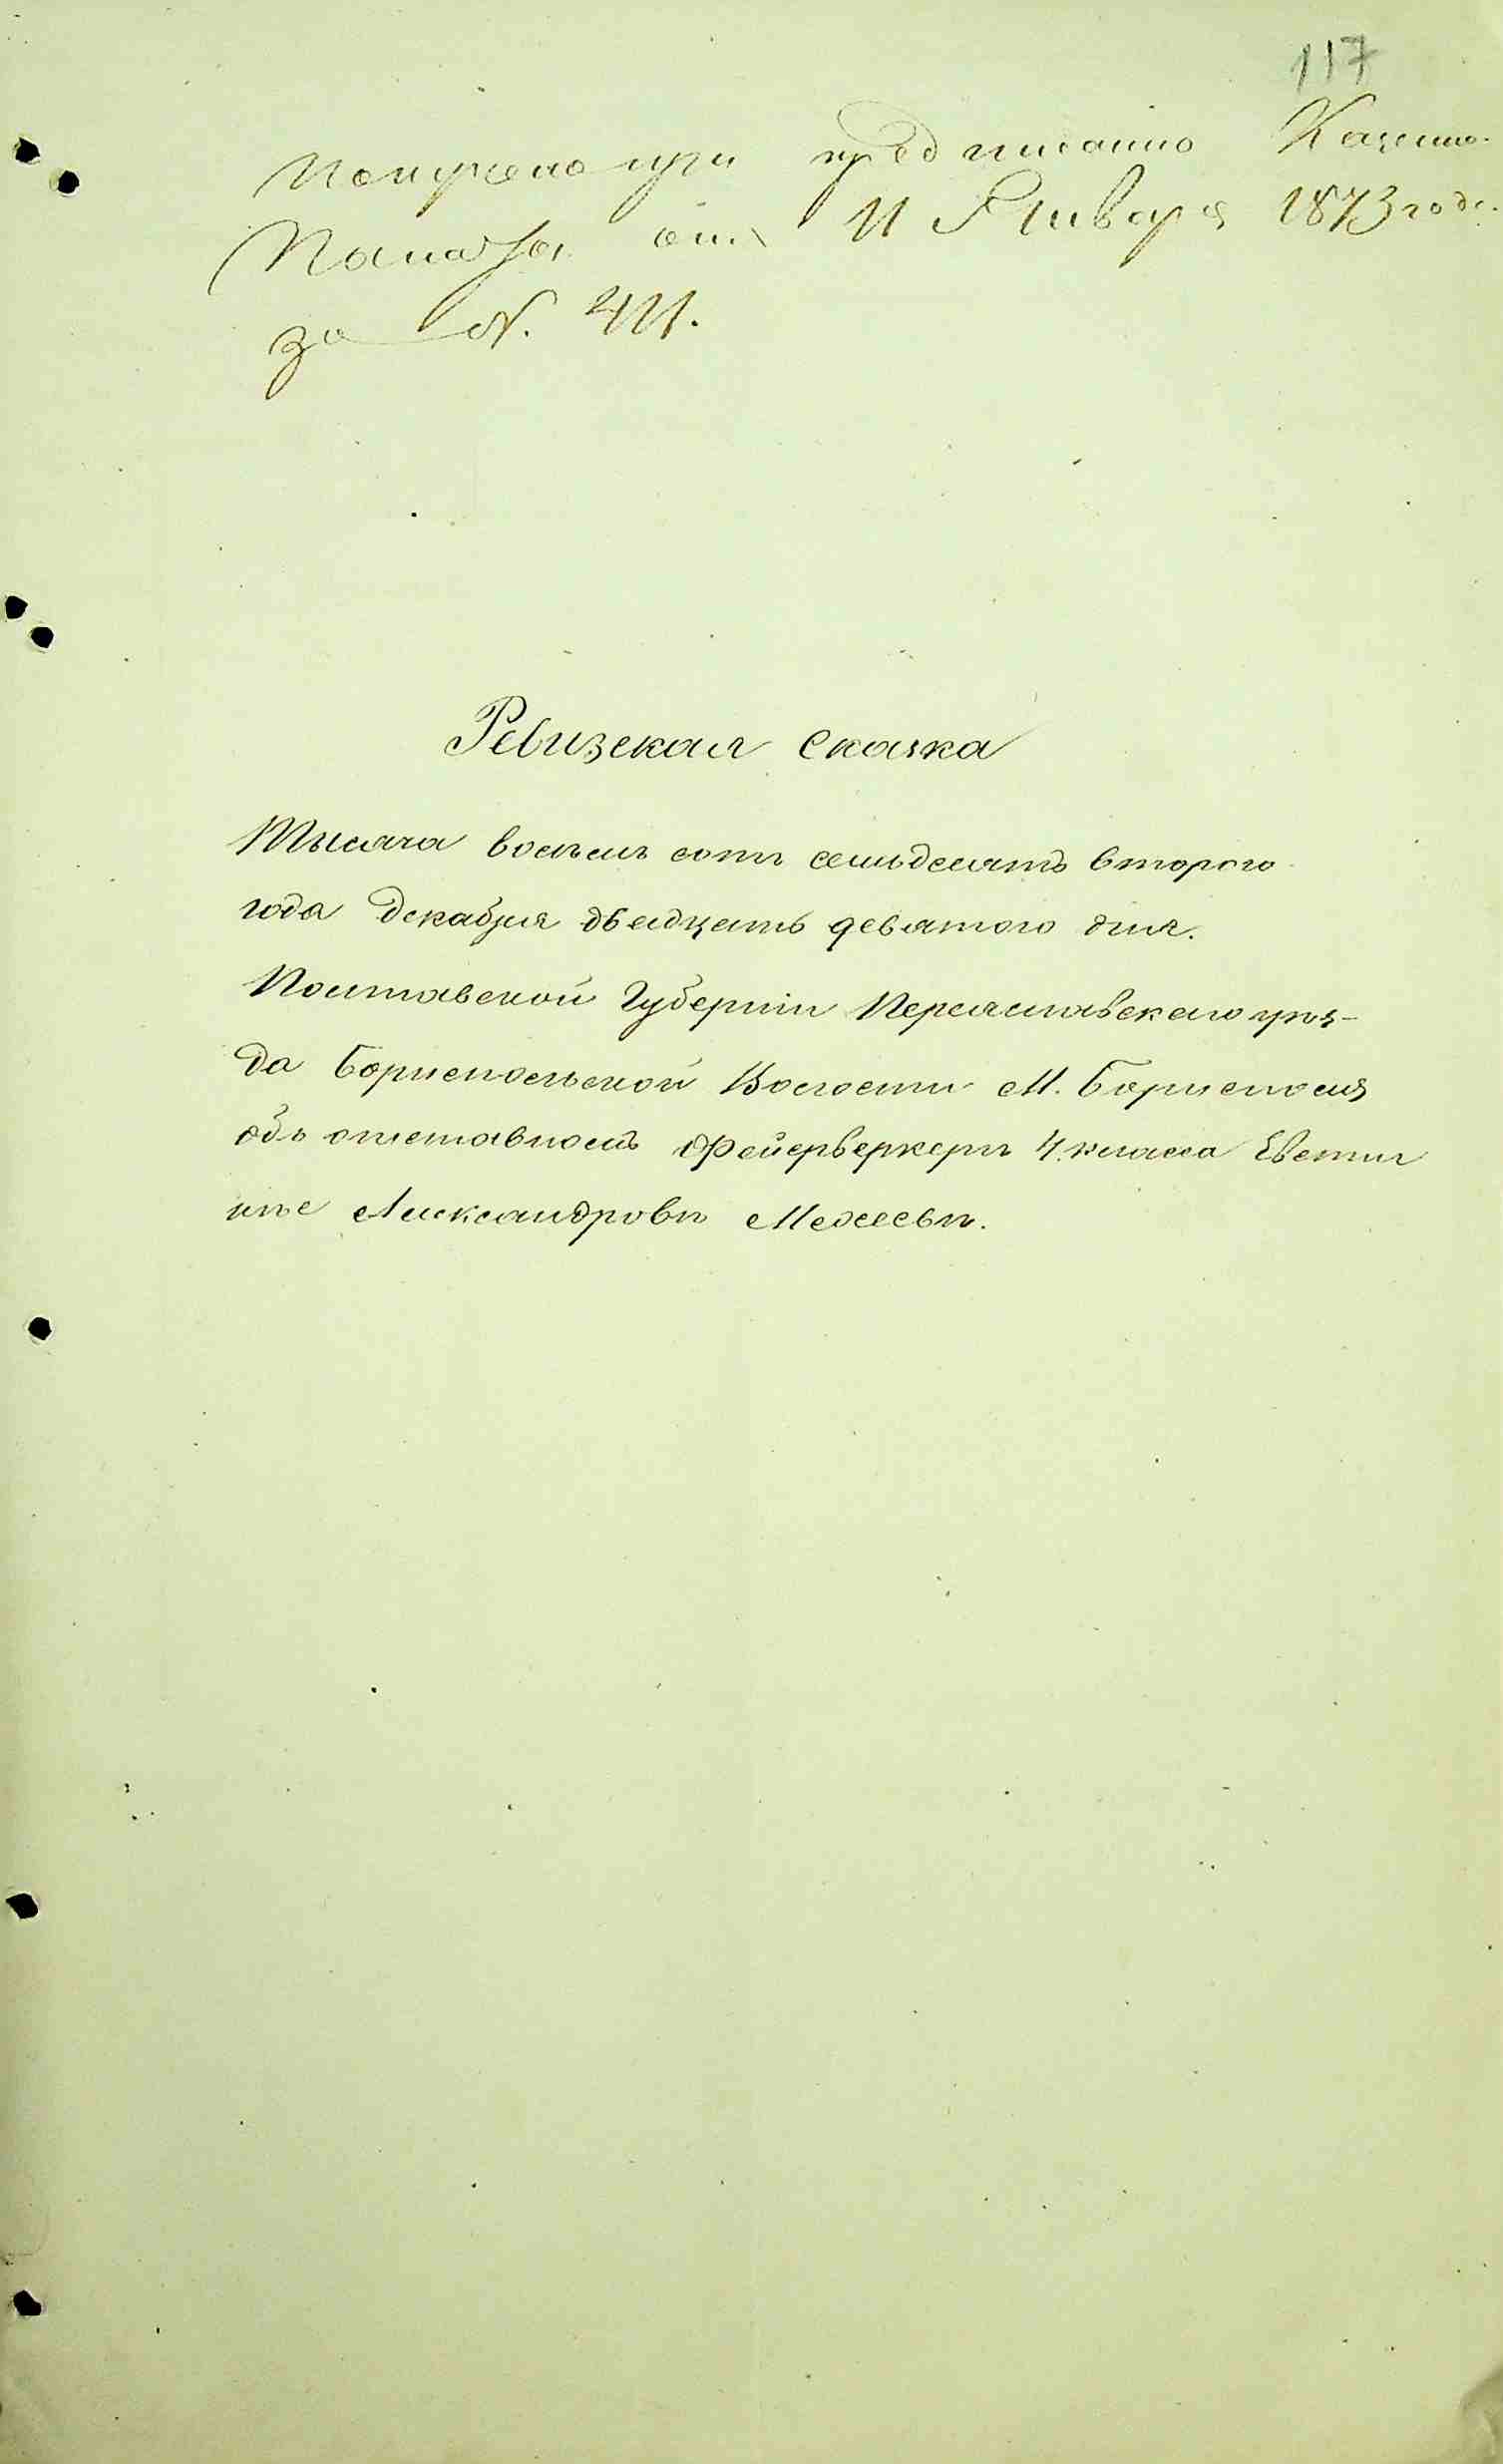 117
Получено при предписанію Казенно.
Палаты отъ 11 Января 1873 года.
за №. 411.
Ревизская сказка
Тысяча восемь сотъ семьдесятъ второго
года Декабря двадцать девятого дня.
Полтавской Губерніи Переяславского уѣз-
да Бориспольской Волости М. Борисполя
объ отставномъ Фейерверкерѣ 4. класса Евстиг
нѣе Александровѣ